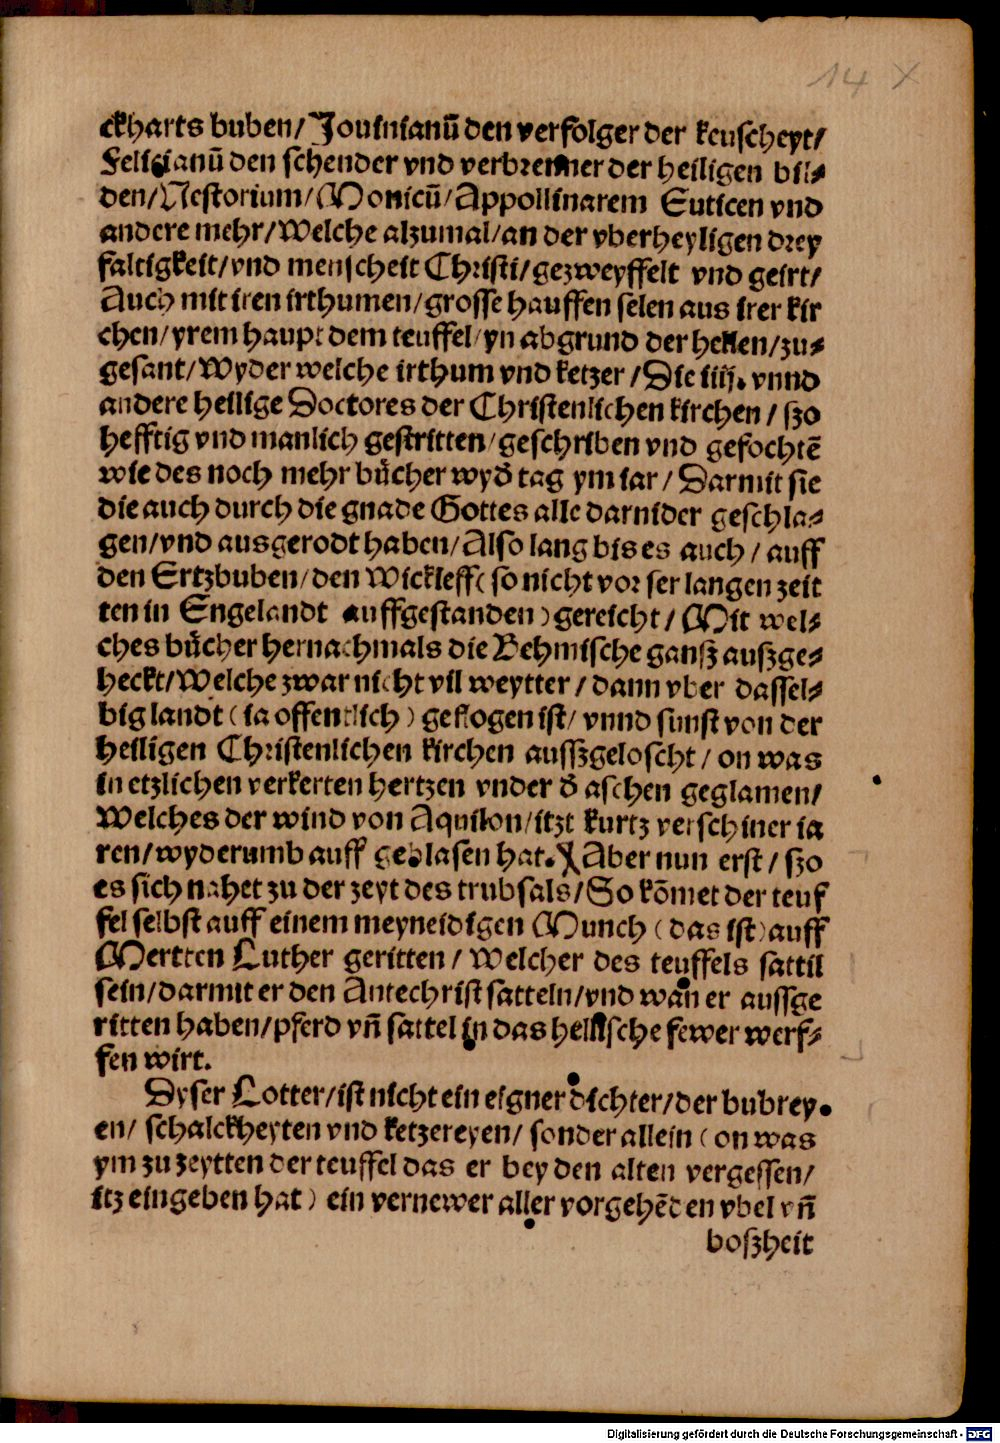 14 X
ckharts buben/ Jouinianū den verfolger der keuscheyt/
Felicianū den schender vnd verbrenner der heiligen bil⸗
den/ Nestorium/ Monicū/ Appollinarem Euticen vnd
andere mehr/ Welche alzumal/ an der vberheyligen drey
faltigkeit/ vnd menscheit Christi/ gezweyffelt vnd geirt/
Auch mit iren irthumen/ grosse hauffen selen aus irer kir
chen/ yrem haupt dem teuffel/ yn abgrund der hellen/ zu⸗
gesant/ Wyder welche irthum vnd ketzer/ Die iiij. vnnd
andere heilige Doctores der Christenlichen kirchen/ szo
hefftig vnd manlich gestritten/ geschriben vnd gefochtē
wie des noch mehr bücher wyd̄ tag ym iar/ Darmit sie
die auch durch die gnade Gottes alle darnider geschla⸗
gen/ vnd ausgerodt haben/ Also lang bis es auch/ auff
den Ertzbuben/ den Wickleff (so nicht vor ser langen zeit
ten in Engelandt auffgestanden) gereicht/ Mit wel⸗
ches bücher hernachmals die Behmische ganß außge⸗
heckt/ Welche zwar nicht vil weytter/ dann vber dassel⸗
big landt (ia offentlich) geflogen ist/ vnnd sunst von der
heiligen Christenlichen kirchen aussgeloscht/ on was
in etzlichen verkerten hertzen vnder d̄ aschen geglamen/
Welches der wind von Aquilon/ itzt kurtz verschiner ia
ren/ wyderumb auff geblasen hat. X Aber nun erst/ szo
es sich nahet zu der zeyt des trubsals/ So kōmet der teuf
fel selbst auff einem meyneidigen Munch (das ist) auff
Mertten Luther geritten/ Welcher des teuffels sattil
sein/ darmit er den Antechrist satteln/ vnd wan er aussge
ritten haben/ pferd vn̄ sattel in das hellische fewer werf⸗
fen wirt.
Dyser Lotter/ ist nicht ein eigner dichter/ der bubrey⸗
en/ schalckheyten vnd ketzereyen/ sonder allein (on was
ym zu zeytten der teuffel das er bey den alten vergessen/
itz eingeben hat) ein vernewer aller vorgehēden vbel vn̄
boßheit
Digitalisierung gefördert durch die Deutsche Forschungsgemeinschaft - DFG